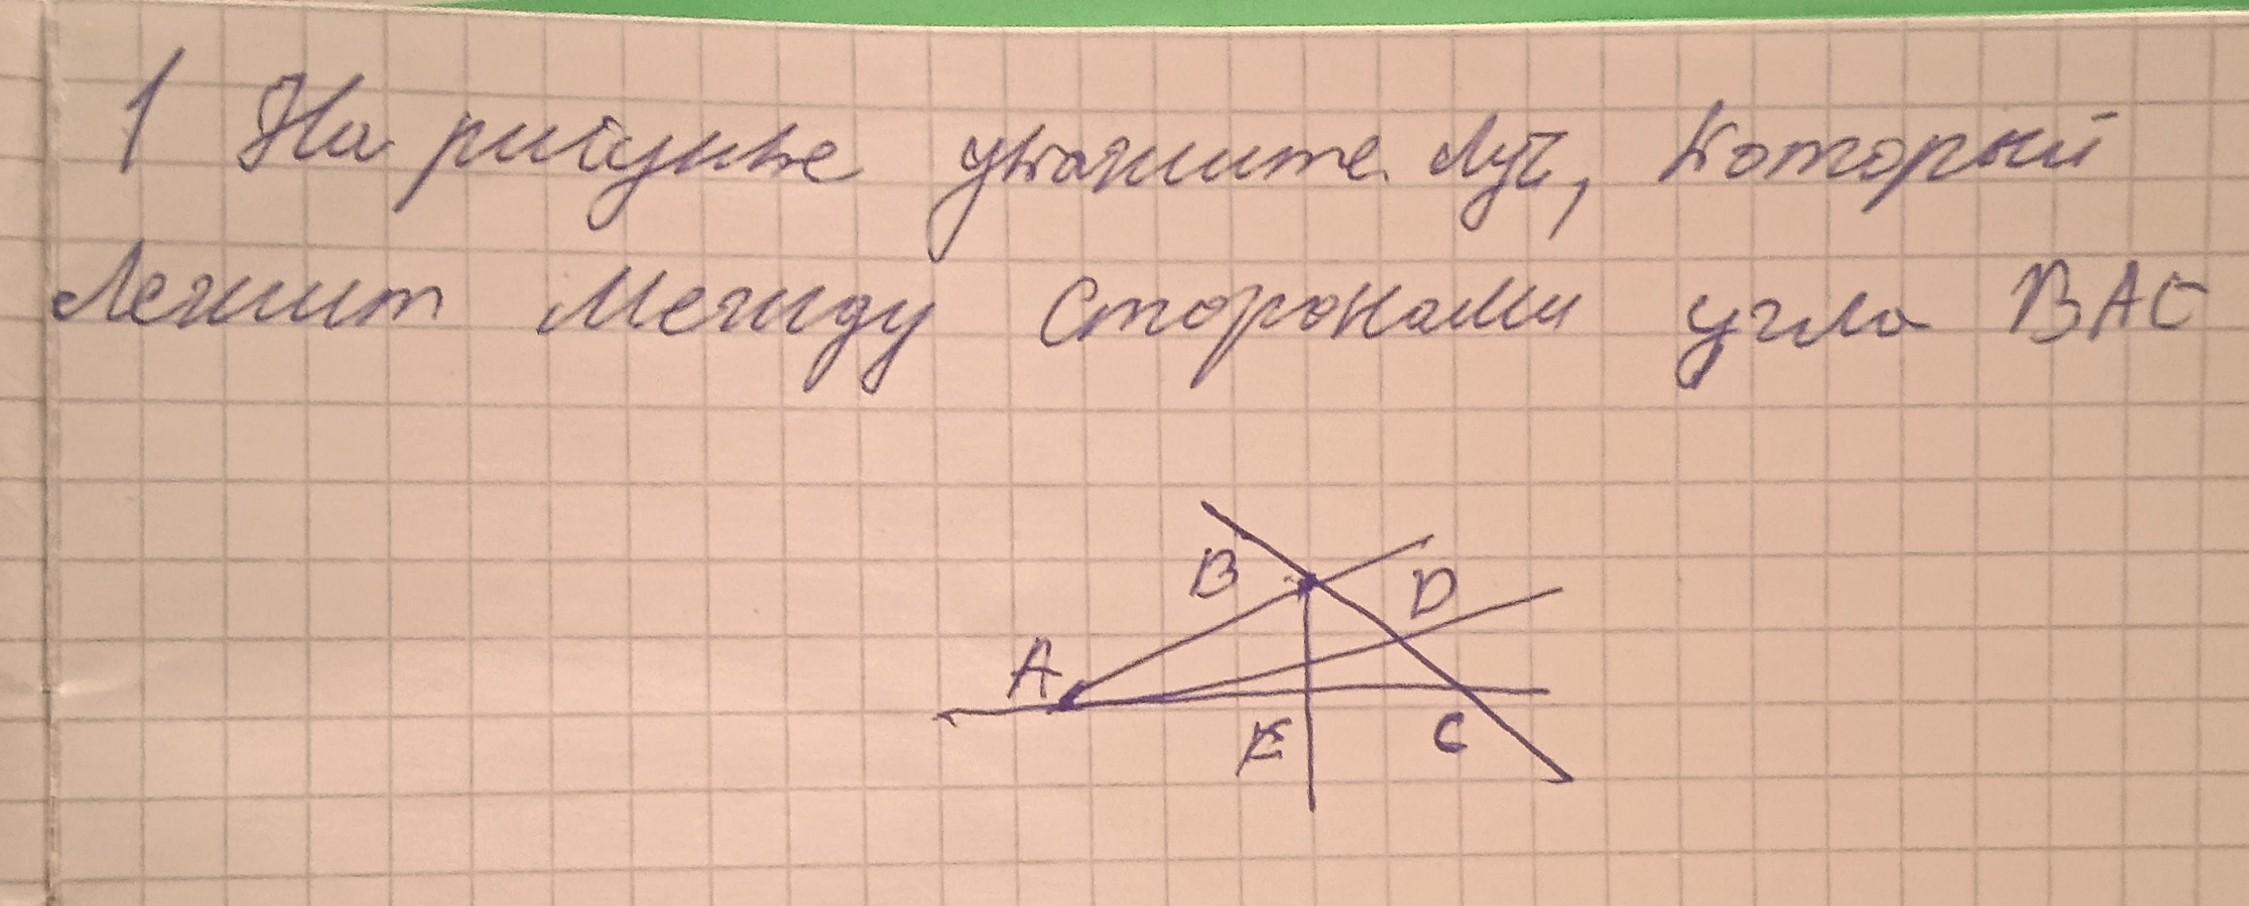 1 На рисунке укажите луч, который
лежит между сторонами угла BAC
B
D
A
E
C